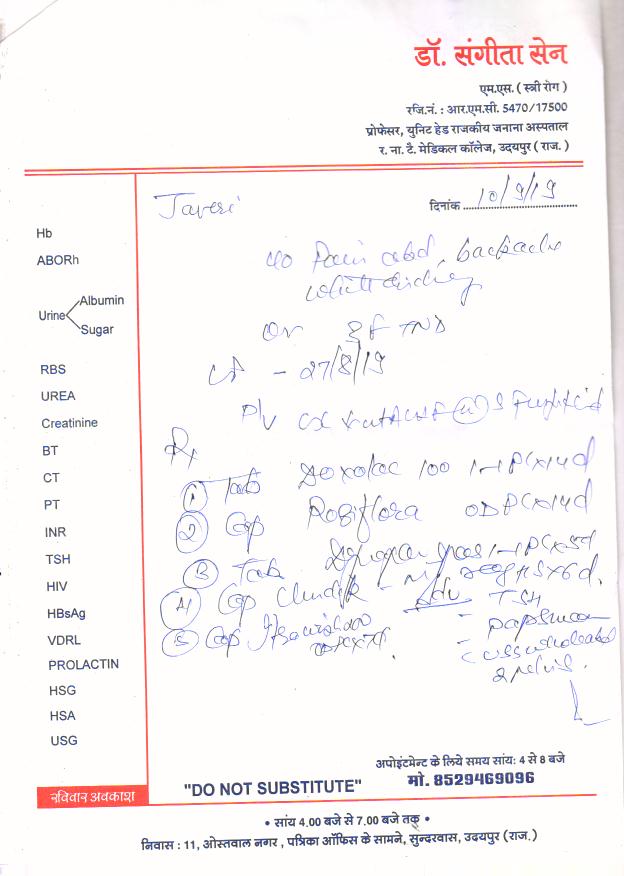 डॉ. संगीता सेन
एम.एस. ( स्त्री रोग )
रजि.नं. : आर.एम.सी. 5470/17500
प्रोफेसर, युनिट हेड राजकीय जनाना अस्पताल
र. ना. टै. मेडिकल कॉलेज, उदयपुर ( राज. )
दिनांक 10/9/19
Hb
ABORh
Urine Albumin
Sugar
RBS
UREA
Creatinine
BT
CT
PT
INR
TSH
HIV
HBsAg
VDRL
PROLACTIN
HSG
HSA
USG
रविवार अवकाश
c/o Pain abd, backache
white
- 27/8/19
P/V
Rx
1 Tab 100 1-1 PC x 14d
2 Cap OD PC x 14d
3 Tab 1-1 PC x 5d
4 Cap HS x 6d.
Adv TSH
5 Cap
- papsmear
अपोइंटमेन्ट के लिये समय सांय: 4 से 8 बजे
मो. 8529469096
"DO NOT SUBSTITUTE"
• सांय 4.00 बजे से 7.00 बजे तक •
निवास : 11, ओस्तवाल नगर , पत्रिका ऑफिस के सामने, सुन्दरवास, उदयपुर (राज.)